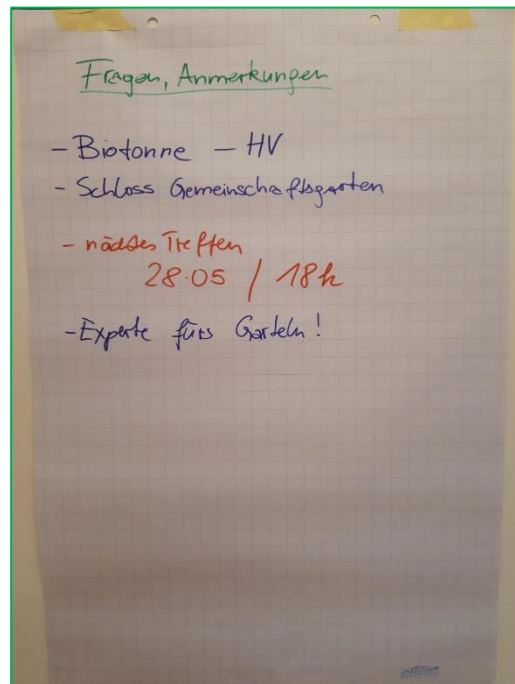 Fragen, Anmerkungen
- Biotonne - HV
- Schloss Gemeinschaftsgarten
- nächstes Treffen
28.05 / 18h
- Experte fürs Garteln!